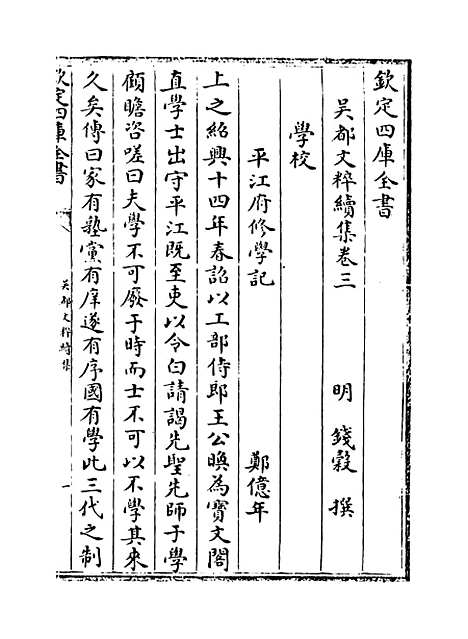 欽定四庫全書
吳都文粹續集卷三 明 錢穀 撰
學校
平江府修學記 鄭億年
上之紹興十四年春詔以工部侍郎王公㬇為寶文閣
直學士出守平江既至吏以令白請謁先聖先師于學
顧瞻咨嗟曰夫學不可廢于時而士不可以不學其來
久矣傳曰家有塾黨有庠遂有序國有學此三代之制
欽定四庫全書
吳都文粹續集
一